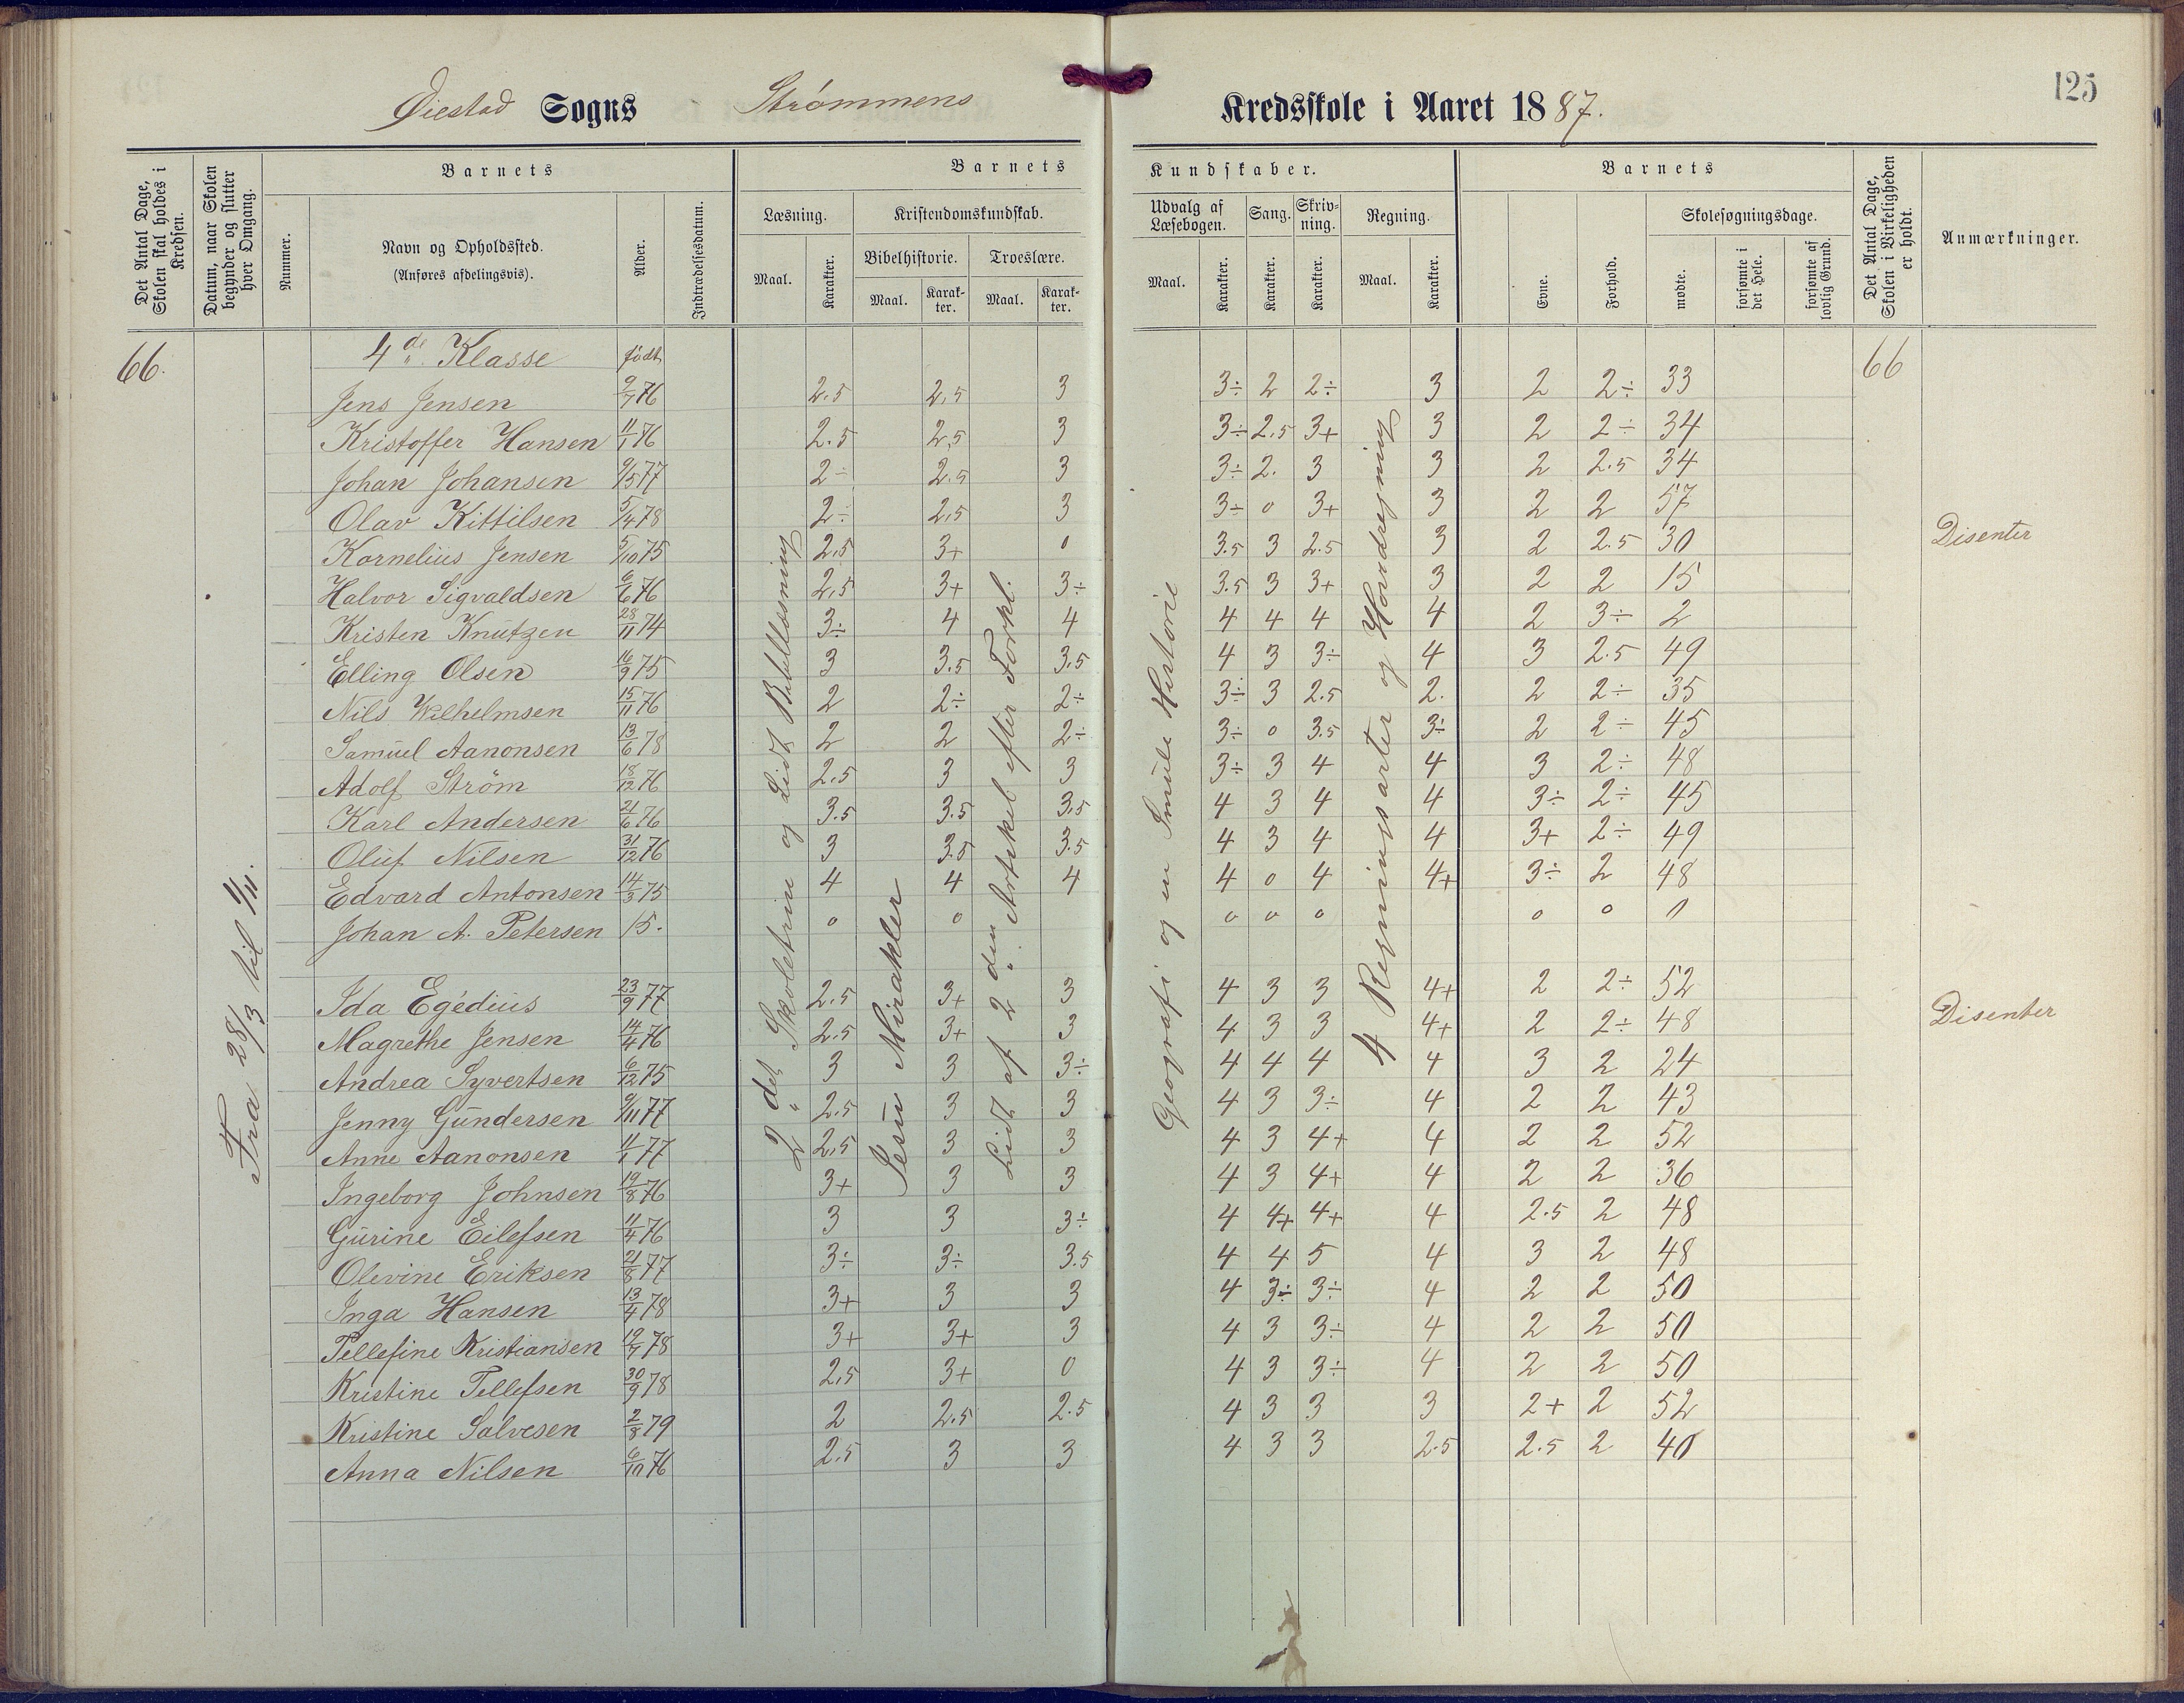 125
Øiestad Sogns Strømmens Kredsskole i Aaret 1887.
Det Antal Dage, Skolen skal holdes i Kredsen.
Datum, naar Skolen begynder og slutter hver Omgang.
Barnets
Nummer.
Navn og Opholdssted.
(Anføres afdelingsvis).
Alder.
Indtrædelsesdatum.
Barnets Kundskaber.
Læsning.
Maal.
Karakter.
Kristendomskundskab.
Bibelhistorie.
Maal.
Karakter.
Troeslære.
Maal.
Karakter.
Udvalg af Læsebogen.
Maal.
Karakter.
Sang.
Karakter.
Skrivning.
Karakter.
Regning.
Maal.
Karakter.
Barnets
Evne.
Forhold.
Skolesøgningsdage.
mødte.
forsømte i det Hele.
forsømte af lovlig Grund.
Det Antal Dage, Skolen i Virkeligheden er holdt.
Anmærkninger.
66. 4de Klasse født 66
Jens Jensen 9/7 76 2.5 2,5 3 3÷ 2 2÷ 3 2 2÷ 33
Kristoffer Hansen 11/1 76 2.5 2,5 3 3÷ 2,5 3+ 3 2 2÷ 34
Johan Johansen 9/5 77 2÷ 2.5 3 3÷ 2. 3 3 2 2.5 34
Olav Kittilsen 5/4 78 2÷ 2,5 3 3÷ 0 3+ 3 2 2 57
Kornelius Jensen 5/10 75 2,5 3+ 0 3.5 3 2.5 3 2 2.5 30 Disenter
Halvor Sigvaldsen 6/6 76 2,5 3+ 3÷ 3.5 3 3+ 3 2 2 15
Kristen Knutzen 28/11 74 3÷ 4 4 4 4 4 4 2 3÷ 2
Elling Olsen 16/9 75 3 3.5 3,5 4 3 3÷ 4 3 2.5 49
Nils Wilhelmsen 15/11 76 2 2÷ 2÷ 3÷ 3 2.5 2. 2 2÷ 35
Samuel Aanonsen 13/6 78 2 2 2÷ 3÷ 0 3.5 3÷ 2 2÷ 45
Adolf Ström 18/12 76 2.5 3 3 3÷ 3 4 4 3 2÷ 48
Karl Andersen 21/6 76 3.5 3.5 3,5 4 3 4 4 3÷ 2÷ 45
Oluf Nilsen 31/12 76 3 3.5 3.5 4 3 4 4 3+ 2÷ 49
Edvard Antonsen 14/3 75 4 4 4 4 0 4 4+ 3÷ 2 48
Johan A. Petersen 15. 0 0 0 0 0 0 0 0
Ida Egedius 23/9 77 2.5 3+ 3 4 3 3 4+ 2 2÷ 52
Magrethe Jensen 14/4 76 2.5 3+ 3 4 3 3 4+ 2 2÷ 48 Disenter
Andrea Syvertsen 6/12 75 3 3 3÷ 4 4 4 4 3 2 24
Jenny Gundersen 9/11 77 2.5 3 3 4 3 3÷ 4 2 2 43
Anne Aanonsen 11/1 77 2,5 3 3 4 3 4+ 4 2 2 52
Ingeborg Johnsen 19/8 76 3+ 3 3 4 3 4+ 4 2 2 36
Gurine Eilefsen 11/4 76 3 3 3÷ 4 4+ 4+ 4 2.5 2 48
Olevine Eriksen 21/8 77 3÷ 3÷ 3.5 4 4 5 4 3 2 48
Inga Hansen 13/4 78 3+ 3 3 4 3÷ 3÷ 4 2 2 50
Tellefine Kristiansen 19/7 78 3+ 3+ 3 4 3 3÷ 4 2 2 50
Kristine Tellefsen 30/9 78 2,5 3+ 0 4 3 3÷ 4 2 2 50
Kristine Salvesen 2/8 79 2 2.5 2.5 4 3 3 3 2+ 2 52
Anna Nilsen 6/10 76 2.5 3 3 4 3 3 2.5 2.5 2 40
Fra 28/3 til 1/11.
2det Skoletrin og Lidt Bibellæsning
Jesu Mirakler
Lidt af 2den Artikel efter Forkl.
Geografi og en Smule Historie
4 Regningsarter og Hovdregning